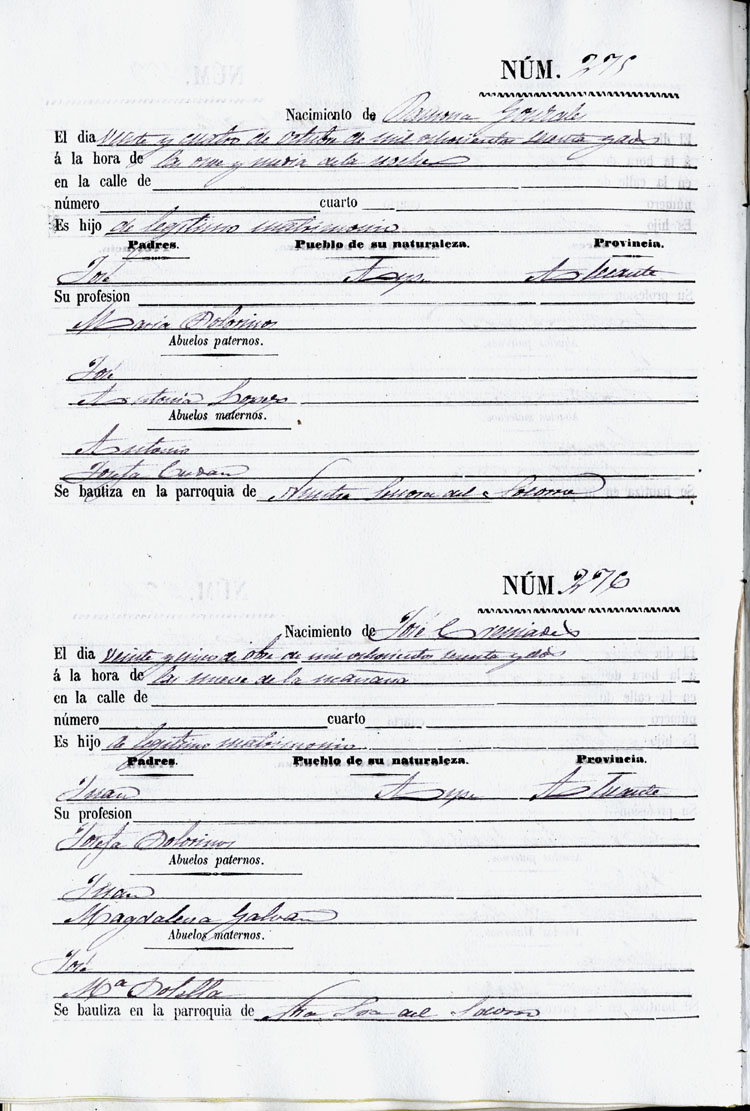 NÚM. 275
Nacimiento de Ramona Gonzale
El dia veinte y cuatro de octubre de mil ochocientos y dos
á la hora de las once y media de la noche
en la calle de
número cuarto
Es hijo de legítimo matrimonio
Padres. Pueblo de su naturaleza. Provincia.
José Aspe Alicante
Su profesion
Maria
Abuelos paternos.
José
Antonia Lopez
Abuelos maternos.
Antonio
Josefa
Se bautiza en la parroquia de Nuestra Señora del Socorro
NÚM. 276
Nacimiento de José
El dia veinte y cinco de obre de mil ochocientos y dos
á la hora de las nueve de la mañana
en la calle de
número cuarto
Es hijo de legitimo matrimonio
Padres. Pueblo de su naturaleza. Provincia.
Juan Aspe Alicante
Su profesion
Josefa
Abuelos paternos.
Juan
Magdalena Galvan
Abuelos maternos.
José
Mª Botella
Se bautiza en la parroquia de Ntra Sra del Socorro